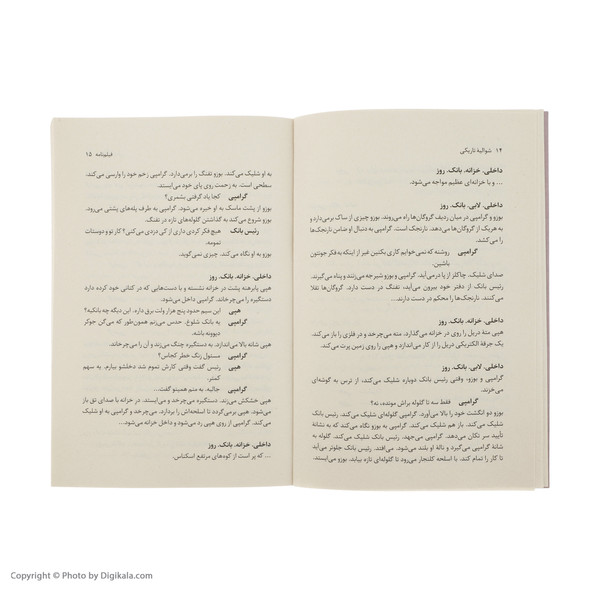 ۱۴ شوالیهٔ تاریکی
داخلی. خزانه. بانک. روز
... و با خزانه‌ای عظیم مواجه می‌شود.
داخلی. لابی. بانک. روز
بوزو و گرامپی در میان ردیف گروگان‌ها راه می‌روند. بوزو چیزی از ساک برمی‌دارد و
به هریک از گروگان‌ها می‌دهد. نارنجک است. گرامپی به دنبال او ضامن نارنجک‌ها
را می‌کشد.
گرامپی روشنه که نمی‌خوایم کاری بکنین غیر از اینکه به فکر جونتون
باشین.
صدای شلیک. چاکلز از پا درمی‌آید. گرامپی و بوزو شیرجه می‌زنند و پناه می‌گیرند.
رئیس بانک از دفتر خود بیرون می‌آید، تفنگ در دست دارد. گروگان‌ها تقلا
می‌کنند. نارنجک‌ها را محکم در دست دارند...
داخلی. خزانه. بانک. روز
هپی مته دریل را روی در خزانه می‌گذارد. مته می‌چرخد و در فلزی را باز می‌کند.
یک جرقهٔ الکتریکی دریل را از کار می‌اندازد و هپی را روی زمین پرت می‌کند.
داخلی. لابی. بانک. روز
گرامپی و بوزو، وقتی رئیس بانک دوباره شلیک می‌کند، از ترس به گوشه‌ای
می‌خزند.
گرامپی فقط سه تا گلوله براش مونده، نه؟
بوزو دو انگشت خود را بالا می‌آورد. گرامپی شلیک می‌کند. رئیس بانک
شلیک می‌کند. باز هم شلیک می‌کند. گرامپی به بوزو نگاه می‌کند که به نشانه
تأیید سر تکان می‌دهد. گرامپی می‌جهد. رئیس بانک شلیک می‌کند. گلوله به
شانهٔ گرامپی می‌گیرد و نالهٔ او بلند می‌شود. می‌افتد. رئیس بانک جلوتر می‌آید
تا کار را تمام کند. با اسلحه کلنجار می‌رود تا گلوله‌ای تازه بیابد. بوزو بلند می‌شود.
فیلم‌نامه ۱۵
به او شلیک می‌کند. بوزو تفنگ را برمی‌دارد. گرامپی زخم خود را وارسی می‌کند.
سطحی است. به زحمت روی پای خود می‌ایستد.
گرامپی کجا یاد گرفتی بشمری؟
بوزو از پشت ماسک به او خیره می‌شود. گرامپی به طرف پله‌های پشتی می‌رود.
بوزو شروع می‌کند به گذاشتن گلوله‌های تازه در تفنگ.
رئیس بانک هیچ فکر کردی داری از کی دزدی می‌کنی؟ کار تو و دوستات
تمومه.
بوزو به او نگاه می‌کند. چیزی نمی‌گوید.
داخلی. خزانه. بانک. روز
هپی پابرهنه پشت در خزانه نشسته و با دست‌هایی که در کتانی خود کرده دارد
دستگیره را می‌چرخاند. گرامپی داخل می‌شود.
هپی این سیم حدود پنج هزار ولت برق داره. این دیگه چه بانکیه؟
گرامپی یه بانک شلوغ. حدس می‌زنم همون‌طور که می‌گن جوکر
دیوونه باشه.
هپی شانه بالا می‌اندازد. به دستگیره چنگ می‌زند و آن را می‌چرخاند.
گرامپی مسئول زنگ خطر کجاس؟
هپی رئیس گفت وقتی کارش تموم شد دخلشو بیارم. یه سهم
کمتر.
گرامپی جالبه. به منم همینو گفت...
هپی خشکش می‌زند. دستگیره می‌چرخد و می‌ایستد. در خزانه با صدای تق باز
می‌شود. هپی برمی‌گردد تا اسلحه‌اش را بردارد. می‌چرخد و گرامپی به او شلیک
می‌کند. گرامپی از روی هپی رد می‌شود و داخل خزانه می‌شود...
داخلی. خزانه. بانک. روز
... که پر است از کوه‌های مرتفع اسکناس.
Copyright © Photo by Digikala.com